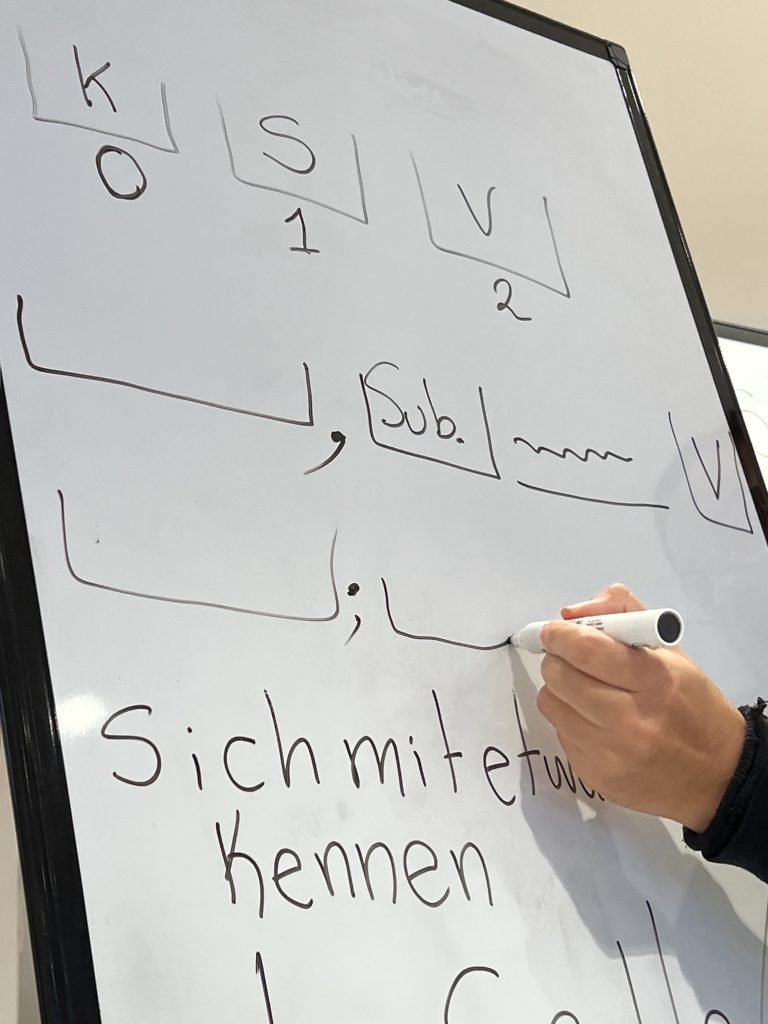 K S V
0 1 2
, Sub. V
;
Sich mit etwa
Kennen